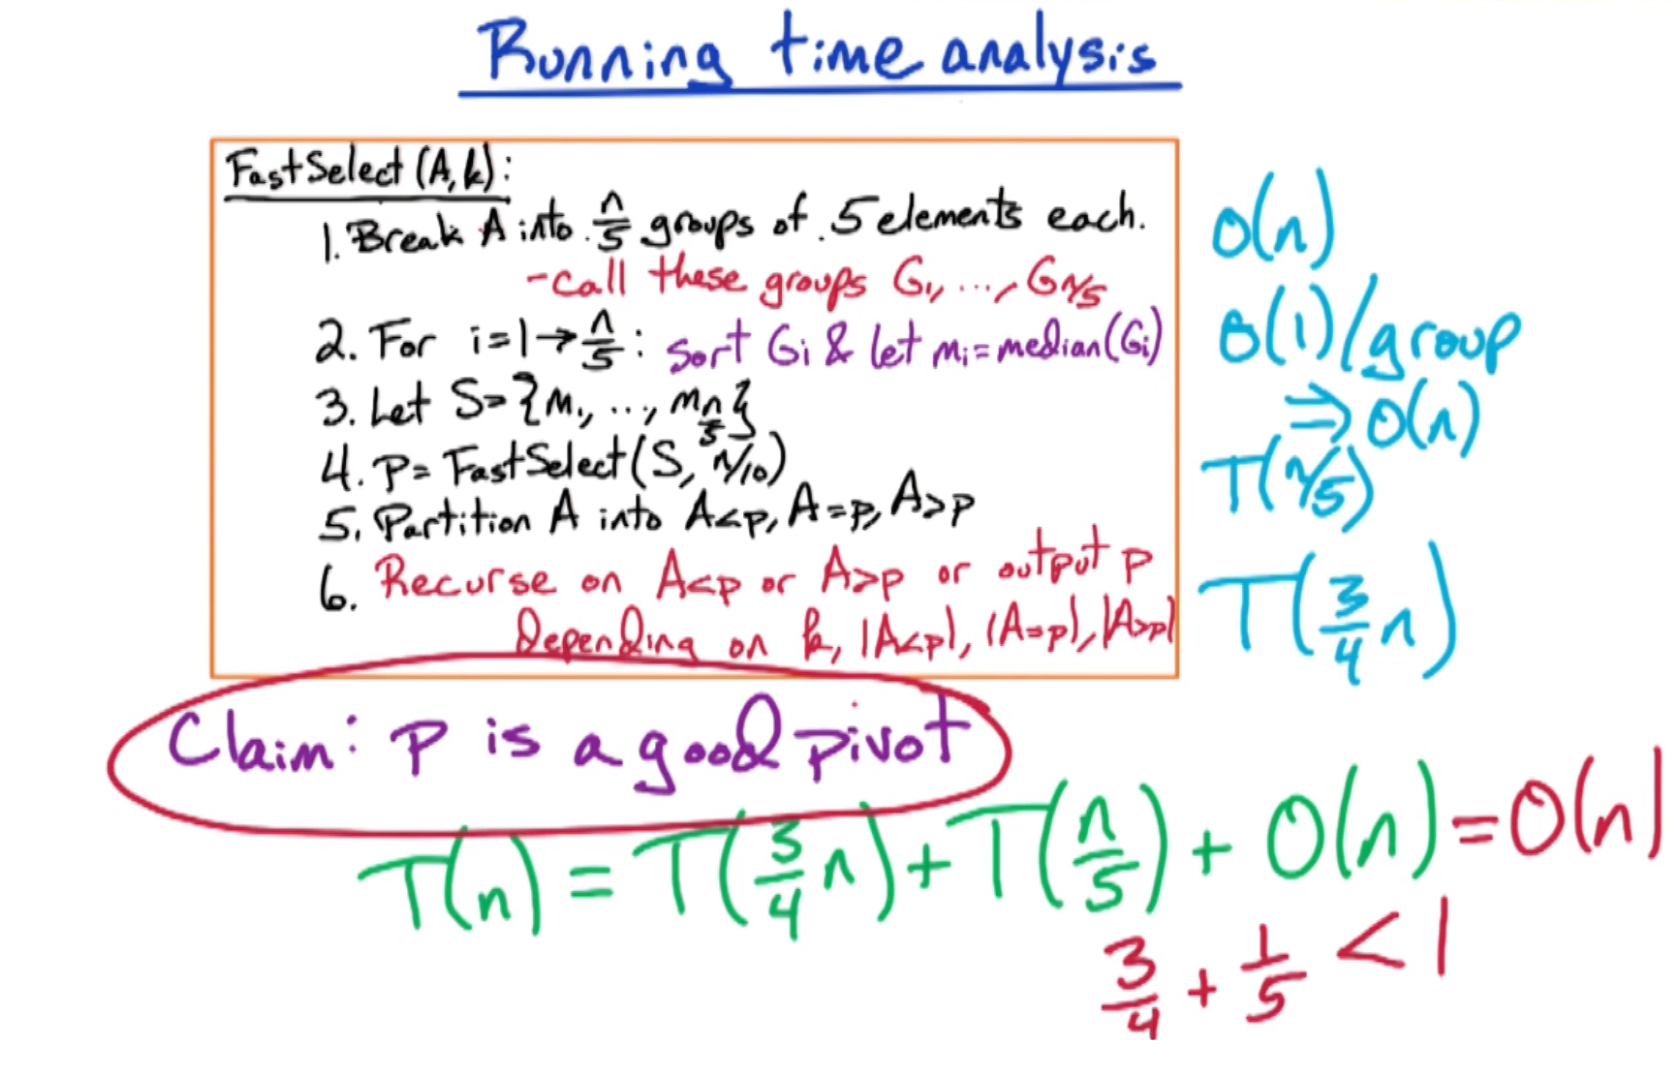 Running time analysis
FastSelect(A,k):
1. Break A into n/5 groups of 5 elements each.
-call these groups G₁, ..., G n/5
2. For i=1→n/5: sort Gi & let mi=median(Gi)
3. Let S={m₁, ..., m n/5}
4. p= FastSelect(S, n/10)
5. Partition A into A<p, A=p, A>p
6. Recurse on A<p or A>p or output p
Depending on k, |A<p|, |A=p|, |A>p|
O(n)
O(1)/group
⇒ O(n)
T(n/5)
T(3/4 n)
Claim: p is a good pivot
T(n) = T(3/4 n) + T(n/5) + O(n) = O(n)
3/4 + 1/5 < 1